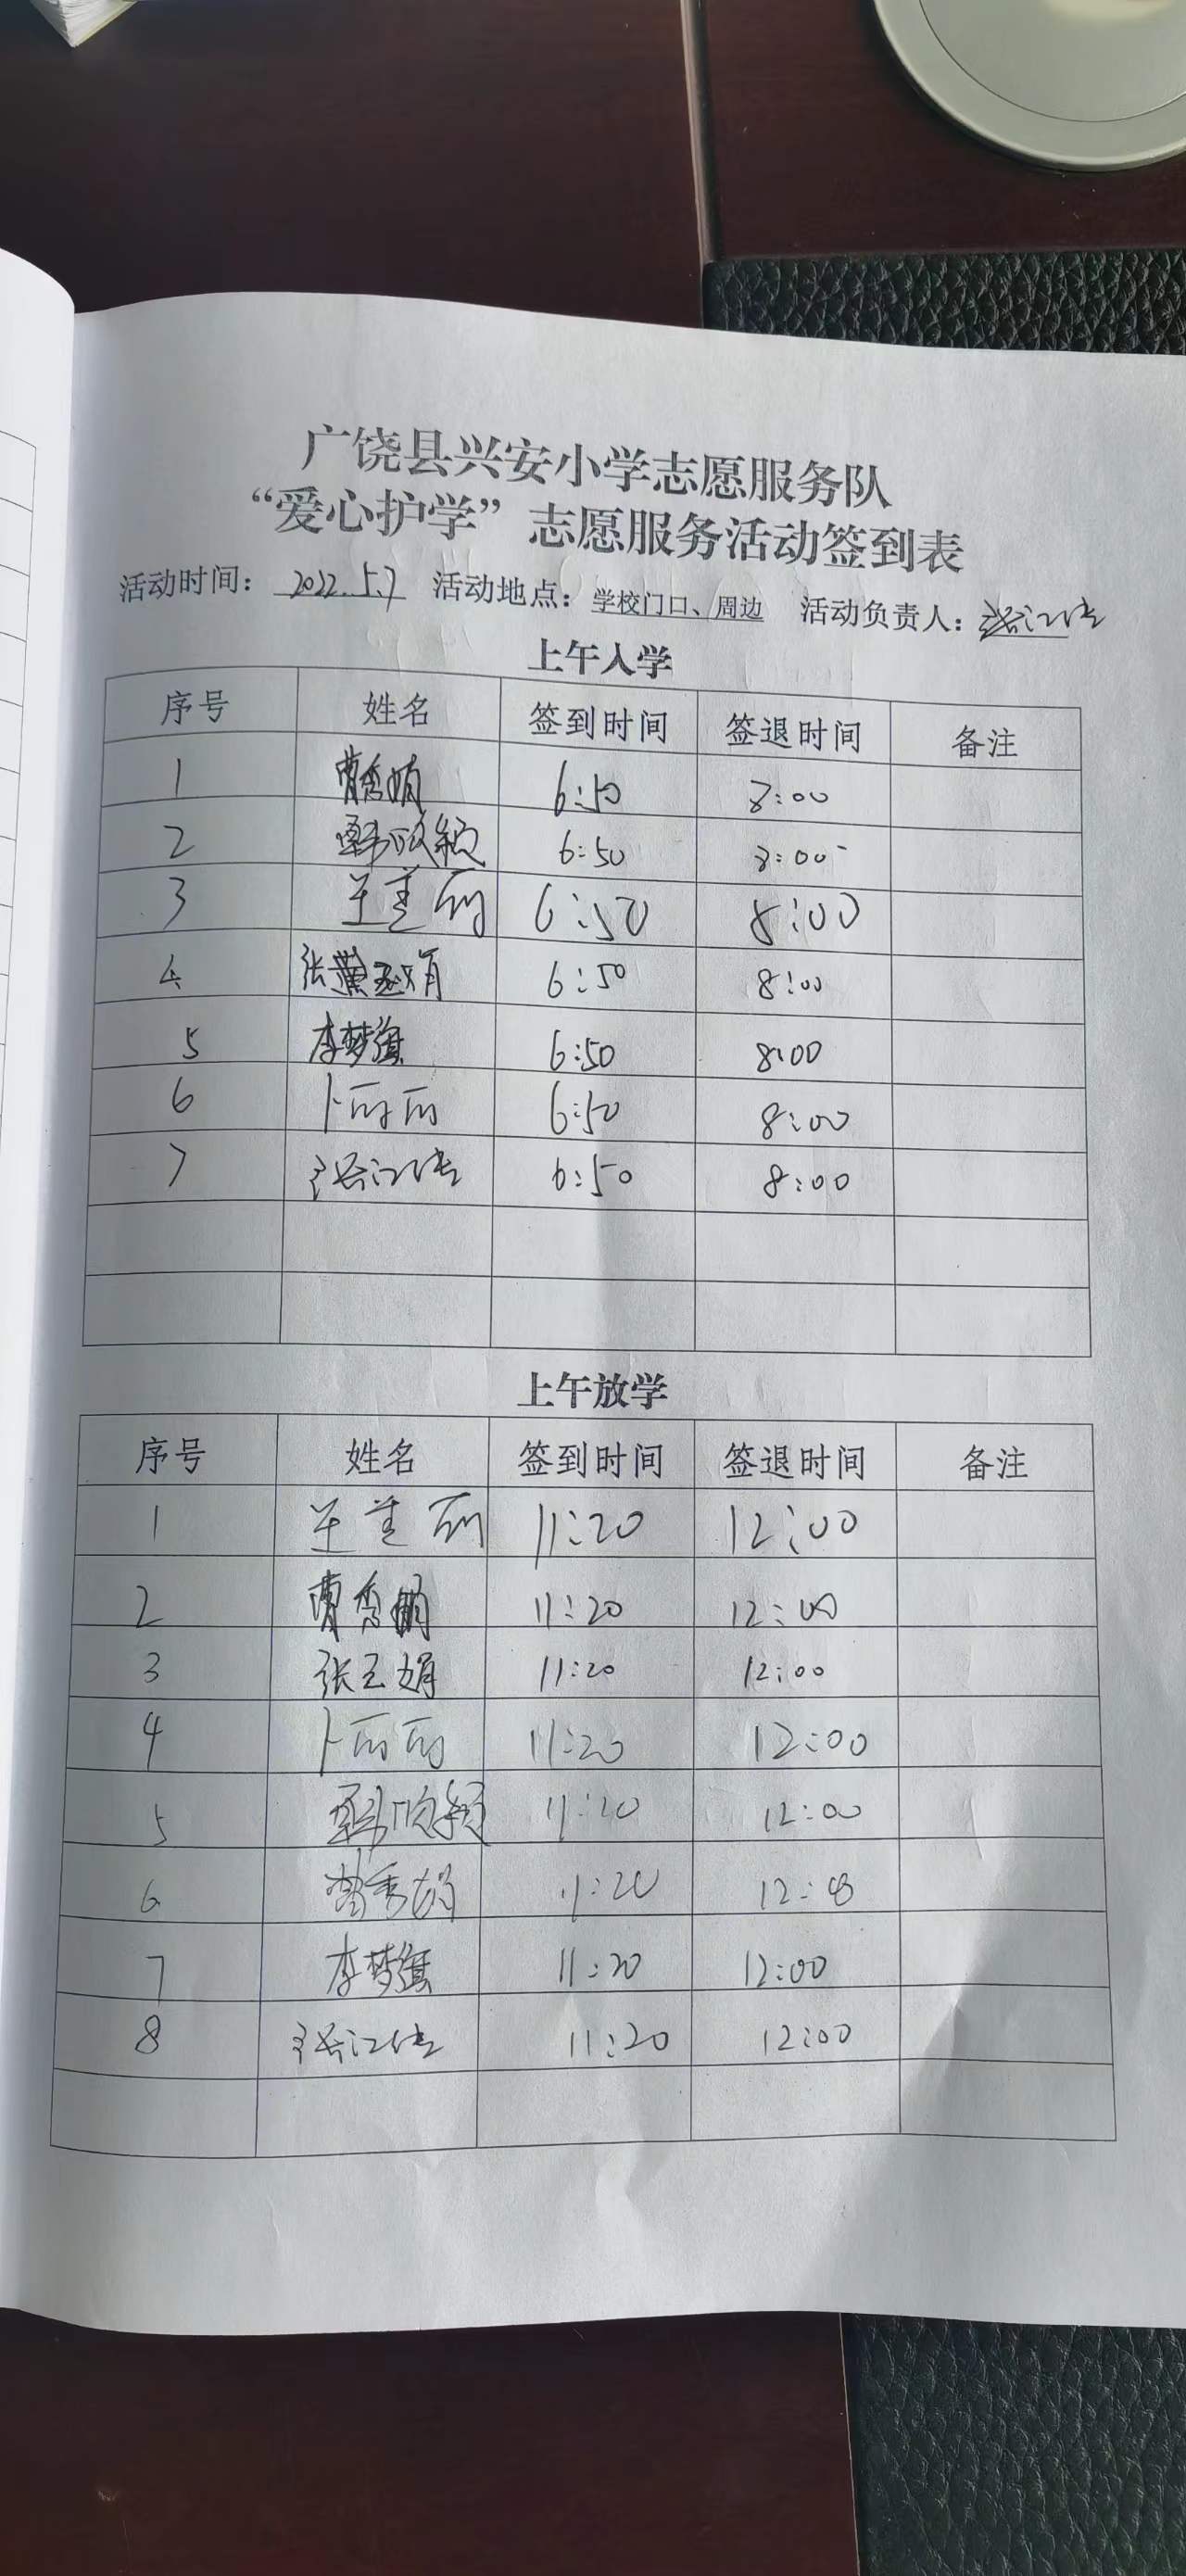 广饶县兴安小学志愿服务队
“爱心护学”志愿服务活动签到表
活动时间： 2022.5.7 活动地点：学校门口、周边 活动负责人：
上午入学
序号 姓名 签到时间 签退时间 备注
1 曹秀娟 6:50 8:00
2 6:50 8:00
3 6:50 8:00
4 张 6:50 8:00
5 李梦 6:50 8:00
6 卜丽丽 6:50 8:00
7 6:50 8:00
上午放学
序号 姓名 签到时间 签退时间 备注
1 11:20 12:00
2 曹秀娟 11:20 12:00
3 张玉娟 11:20 12:00
4 卜丽丽 11:20 12:00
5 11:20 12:00
6 秀 11:20 12:00
7 李梦 11:20 12:00
8 11:20 12:00